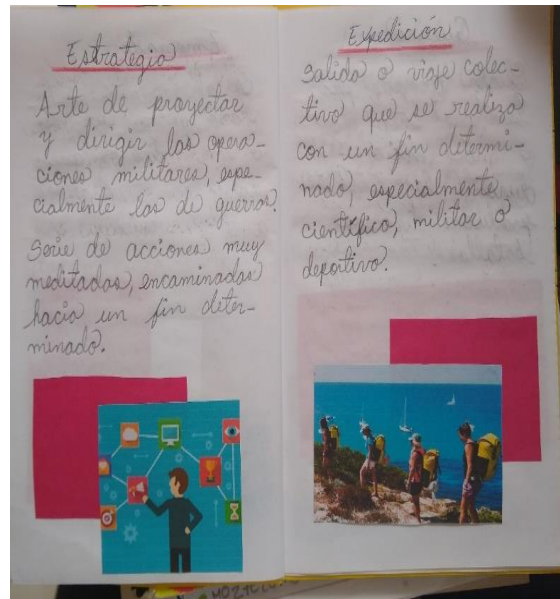 Estrategia
Arte de proyectar
y dirigir las opera-
ciones militares, espe-
cialmente las de guerras.
Serie de acciones muy
meditadas, encaminadas
hacia un fin deter-
minado.
Expedición
Salida o viaje colec-
tivo que se realiza
con un fin determi-
nado, especialmente
científico, militar o
deportivo.